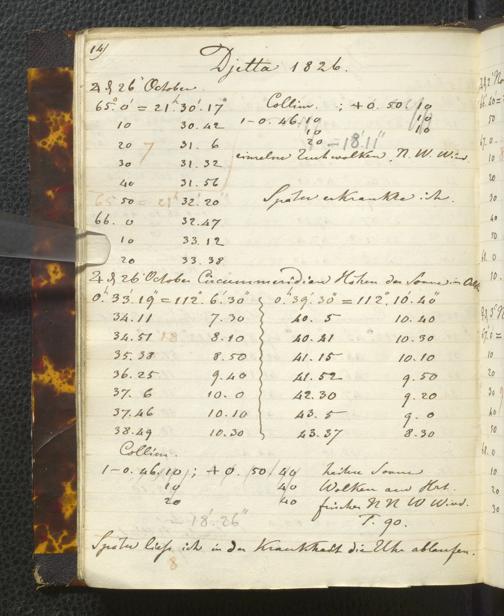 14)
Djetta 1826.
♃ d 26 October.
65° 0' = 21h 30' 17" Collim. ; +0. 50/ 10
10 30.42 1-0.46. 10 10
20 31. 6 10 10
30 31.32 20 = 18'.11"
40 31.56 einzelne Wolken. N.W. Wind.
50 32.20 Später erkrankte ich.
66. 0 32.47
10 33.12
20 33.38
♃ d 26 October Circummeridian Höhen der Sonne im
0h 33.19 = 112°. 6.30" 0h 39.30" = 112°. 10.40"
34.11 7.30 40. 5 10.40
34.51 8.10 40.41 10.30
35.38 8.50 41.15 10.10
36.25 9.40 41.52 9.50
37. 6 10.0 42.30 9.20
37.46 10.10 43.5 9.0
38.49 10.30 43.37 8.30
Collim.
1-0.46/10 ; +0. 50/ 40 heitere Sonne
10 40 Wolken am Hor.
20 40 frischer N N W Wind.
= 18'.26" T. 90.
Später ließ ich in der Krankheit die Uhr ablaufen.
8